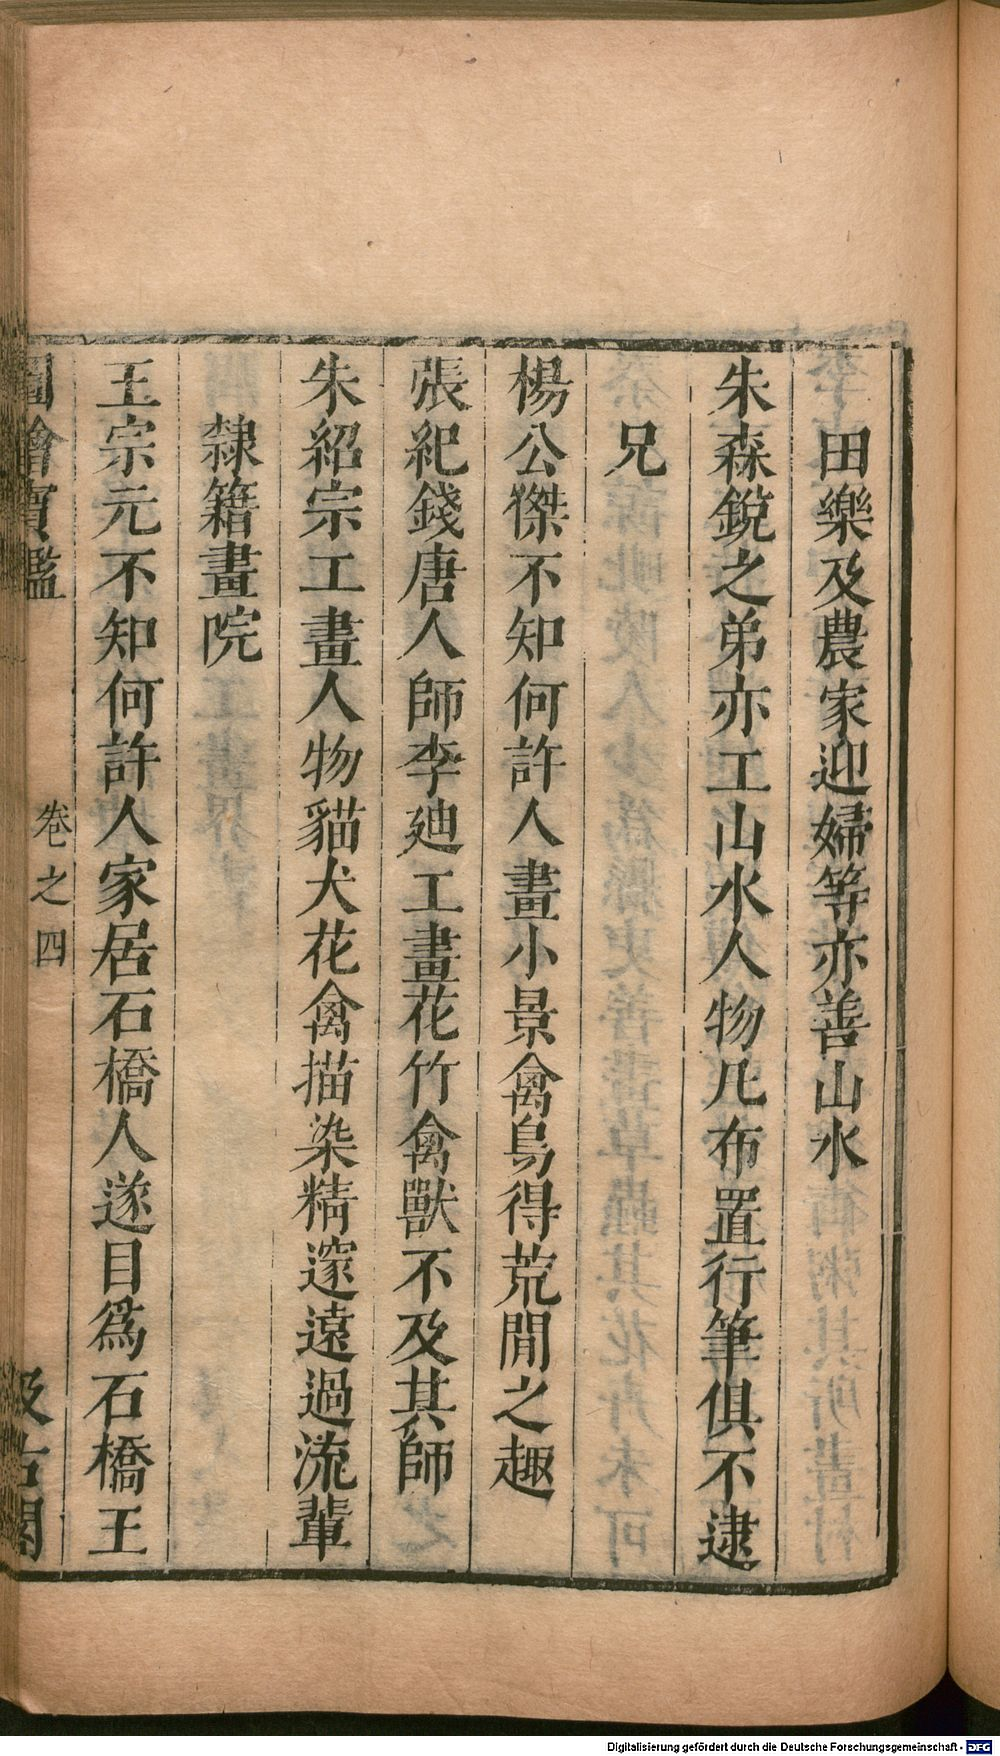 田樂及農家迎婦等亦善山水
朱森銳之弟亦工山水人物凡布置行筆俱不逮
兄
楊公傑不知何許人畫小景禽鳥得荒閒之趣
張紀錢唐人師李廸工畫花竹禽獸不及其師
朱紹宗工畫人物貓犬花禽描染精邃遠過流輩
隸籍畫院
王宗元不知何許人家居石橋人遂目爲石橋王
圖繪寶鑑 卷之四 汲古閣
Digitalisierung gefördert durch die Deutsche Forschungsgemeinschaft - DFG